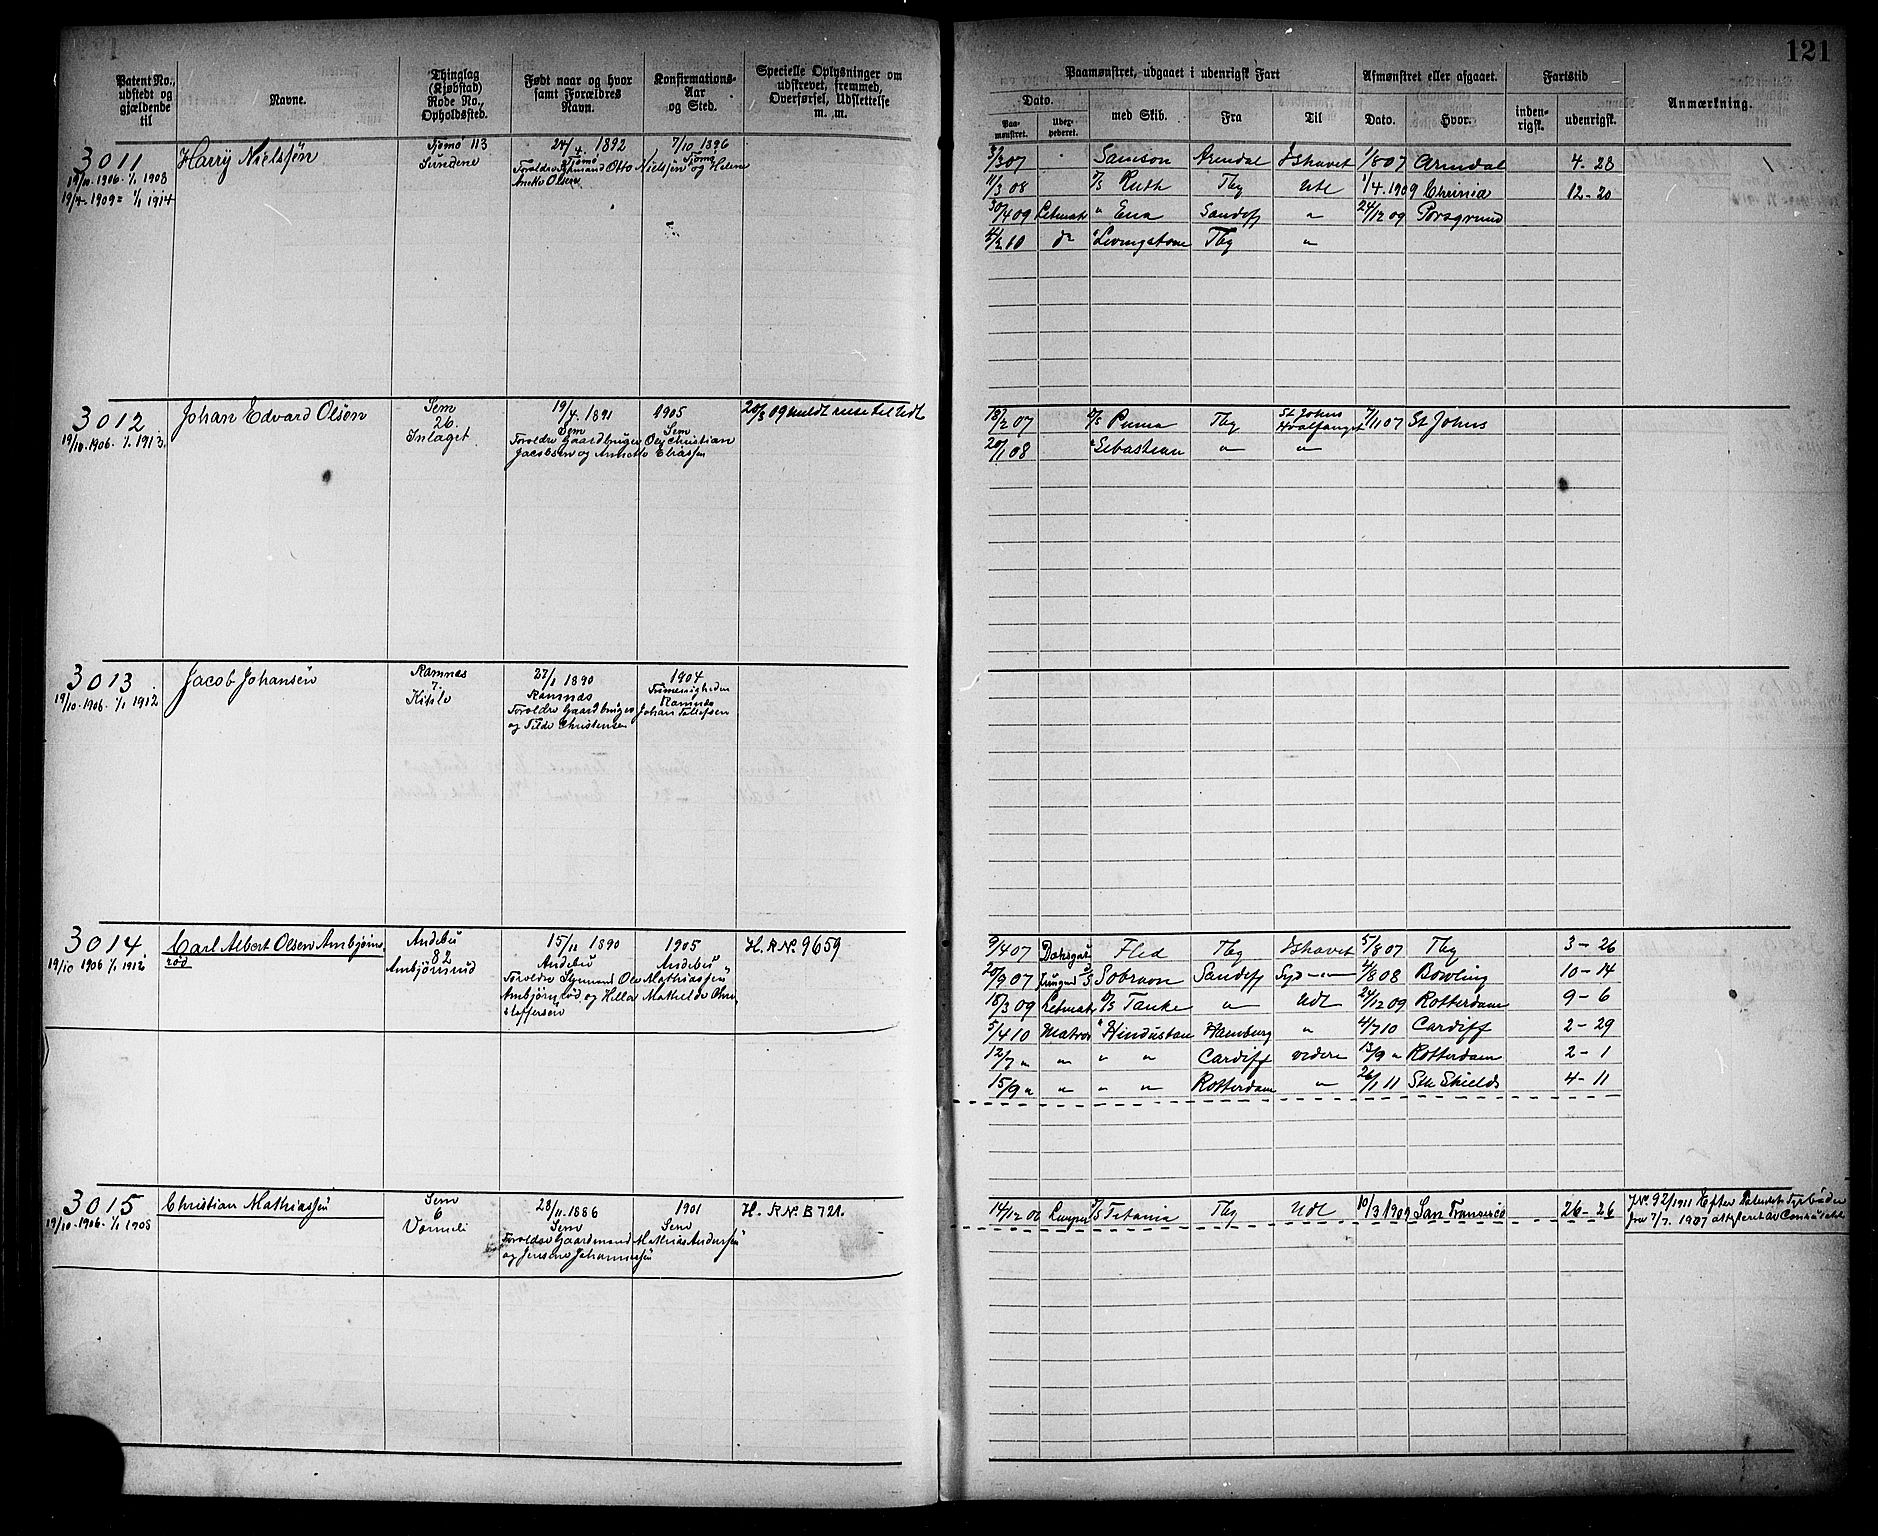 121
Patent No., udstedt og gjældende til
Navne.
Thinglag (Kjøbstad) Rode No., Opholdssted.
Født naar og hvor samt Forældres Navn.
Konfirmations-Aar og Sted.
Specielle Oplysninger om udskrevet, fremmed, Overførsel, Udslettelse m. m.
Paamønstret, udgaaet i udenrigsk Fart
Afmønstret eller afgaaet.
Fartstid
Anmærkning.
Dato.
Paa-mønstret.
med Skib.
Fra
Til
Dato.
Hvor.
inden-rigsk.
udenrigsk.
3011
19/10.1906. 1/1 1908
19/4.1909= 1/1 1914
Harry Nielsen
Tjømø 113
Sundene
24/4. 1892
Tjømø
7/10 1896
Tjømø
Forældre Sømand Otto Nielsen og Helene
Anette Olsen
3/3 07 Samson Arendal Ishavet 1/8 07 Arendal 4-28
11/3 08 D/S Ruth Tbg Udl 1/4.1909 Chrinia 12-20
30/4 09 Letmatr " Ena Sandefj " 24/12 09 Porsgrund
4/2 10 do " Levingstone Tbg "
3012
19/10.1906. 1/1 1913.
Johan Edvard Olsen
Sem
26.
Inlaget
19/4. 1891
Sem
1905
Sem
Forældre Gaardbruger Ole Christian
Jacobsen og Annette Eliassen
20/3 09 meldt reise til Udl
18/2 07 D/S Puma Tbg St Johns Hvalfanget 7/11 07 St Johns
20/1 08 " Sebastian " "
3013
19/10.1906. 1/1 1912
Jacob Johansen
Ramnæs
7.
27/1 1890
Ramnæs
1904
Frimenigheden
Ramnæs
Forældre Gaardbruger Johan Tollefsen
og Tilde Christensen
3014
19/10 1906 1/1 1912
Carl Albert Olsen Ambjørns
rød
Andebu
82
Ambjørnrud
15/11 1890
Andebu
1905
Andebu
Forældre Sømand Ole Mathiassen
Ambjørnsrød og Hella Mathilde Chri
stoffersen
H. R No. 9659
9/4 07 Fled Tbg Ishavet 5/8 07 Tbg 3-26
20/9 07 Jungmd S/S Sobraon Sandefj Syd-"- 4/8 08 Bowling 10-14
18/3 09 Letmatr D/S Tanke " Udl 24/12 09 Rotterdam 9-6
5/4 10 Matros " Hindustan Hamburg " 4/7 10 Cardiff 2-29
12/7 " " " " Cardiff videre 13/9 " Rotterdam 2-1
15/9 " " " " Rotterdam " 26/1 11 Sth Shields 4-11
3015
19/10.1906. 1/1 1908
Christian Mathiassen
Sem
6
Vormeli
28/11. 1886
Sem
1901
Sem
Forældre Gaardmand Mathias Andersen
og Jensine Johannessen
H. R No. B 721.
14/12 06 Lemper D/S Titania Tbg Udl 10/3 1909 San Fransisco 26-26
J.No. 92/1911 Efter Patentets
fra 7/7. 1907 attesteret av Consulatet